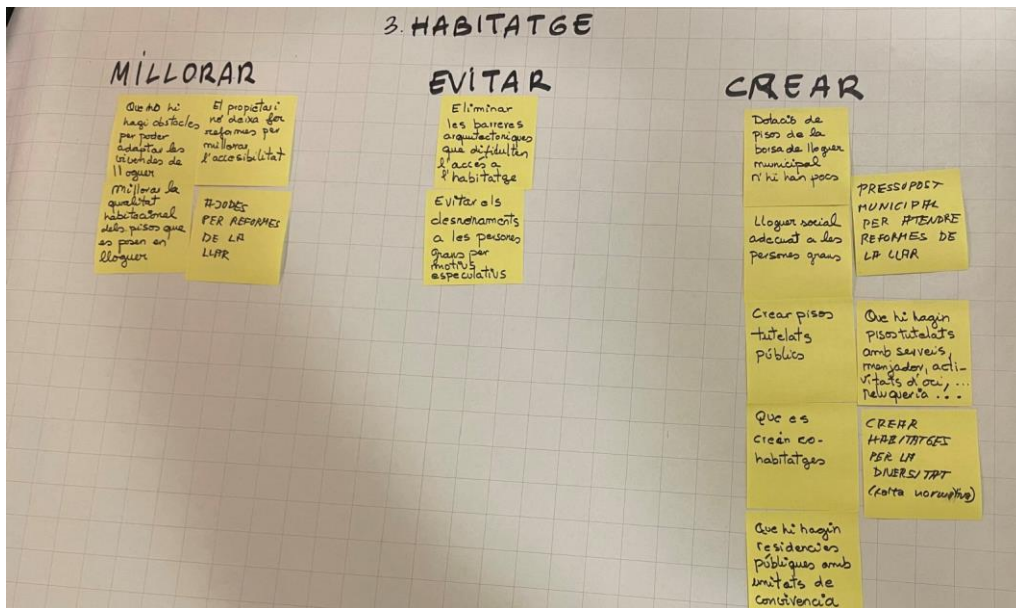 3. HABITATGE
MILLORAR
Que no hi
hagi obstacles
per poder
adaptar les
vivendes de
lloguer
El propietari
no deixa fer
reformes per
millorar
l'accesibilitat
millorar la
qualitat
habitacional
dels pisos que
es posen en
lloguer
AJODES
PER REFORMES
DE LA
LLAR
EVITAR
Eliminar
les barreres
arquitectoniques
que dificulten
l'accés a
l'habitatge
Evitar els
desnonaments
a les persones
grans per
motius
especulatius
CREAR
Dotació de
pisos de la
borsa de lloguer
municipal
n'hi han pocs
Lloguer social
adecuat a les
persones grans
PRESSOPOST
MUNICIPAL
PER ATENDRE
REFORMES DE
LA LLAR
Crear pisos
tutelats
públics
Que hi hagin
pisos tutelats
amb serveis,
menjador, acti-
vitats d'oci, ...
peluqueria ...
Que es
creén co-
habitatges
CREAR
HABITATGES
PER LA
DIVERSITAT
(falta normativa)
Que hi hagin
residencies
públiques amb
unitats de
convivencia